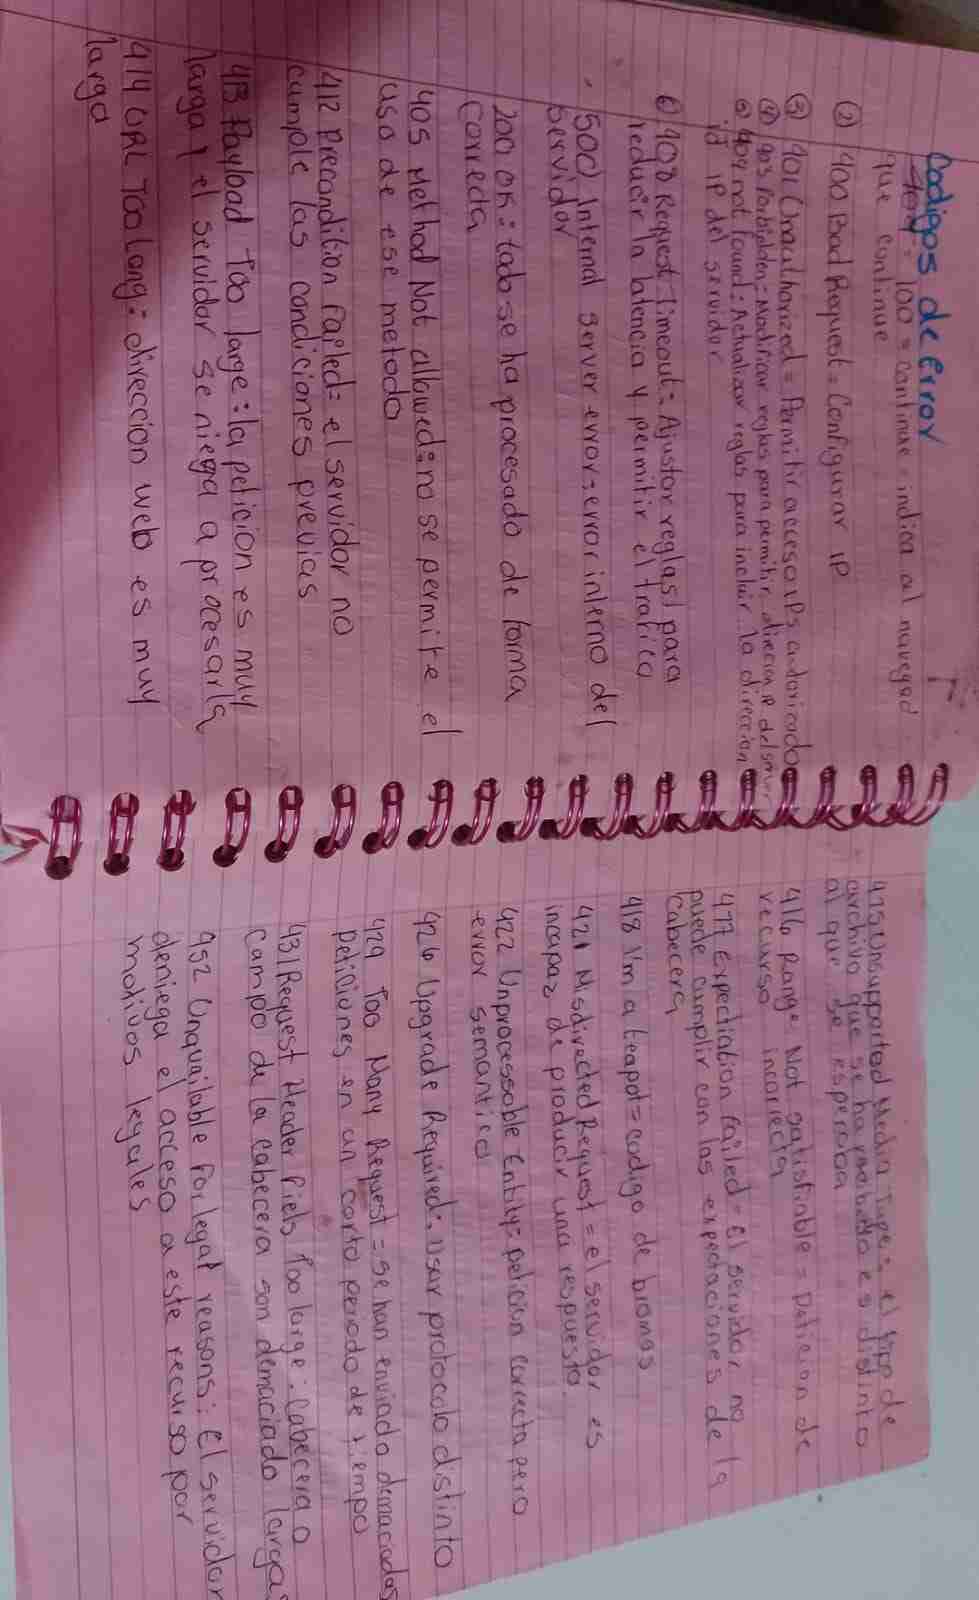 Codigos de Error
100 = Continue = indica al navegad
que continue
② 400 Bad Request = Configurar IP
③ 401 Unauthorized = Permitir acceso IPs autoricado
④ 403 Forbidden = Modificar reglas para permitir direccion IP del
⑤ 404 not found: Actualizar reglas para incluir la direccion
id IP del servidor
⑥ 408 Request Timeout: Ajustar reglas para
reducir la latencia y permitir el trafico
500) Internal server error: error interno del
servidor
200 OK: todo se ha procesado de forma
correcta
405 Method Not allowed: no se permite el
uso de ese metodo
412 precondition failed = el servidor no
cumple las condiciones previas
413 Payload Too large: la peticion es muy
larga y el servidor se niega a procesarla
414 URL Too long: direccion web es muy
larga
415 Unsupported Media Type: el tipo de
archivo que se ha es distinto
al que se esperaba
416 Range Not satisfiable = Peticion de
recurso incorrecta
417 Expectation failed = El servidor no
puede cumplir con las expectaciones de la
cabecera
418 I'm a teapot = codigo de bromas
421 Misdirected Request = el servidor es
incapaz de producir una respuesta
422 Unprocessable Entity: peticion correcta pero
error semantico
426 Upgrade Required: Usar protocolo distinto
429 Too Many Request = se han enviado demaciadas
peticiones en un corto periodo de tiempo
431 Request Header fiels Too large: Cabecera o
campo de la cabecera son demaciado largas
952 Unquailable for legal reasons: El servidor
deniega el acceso a este recurso por
motivos legales